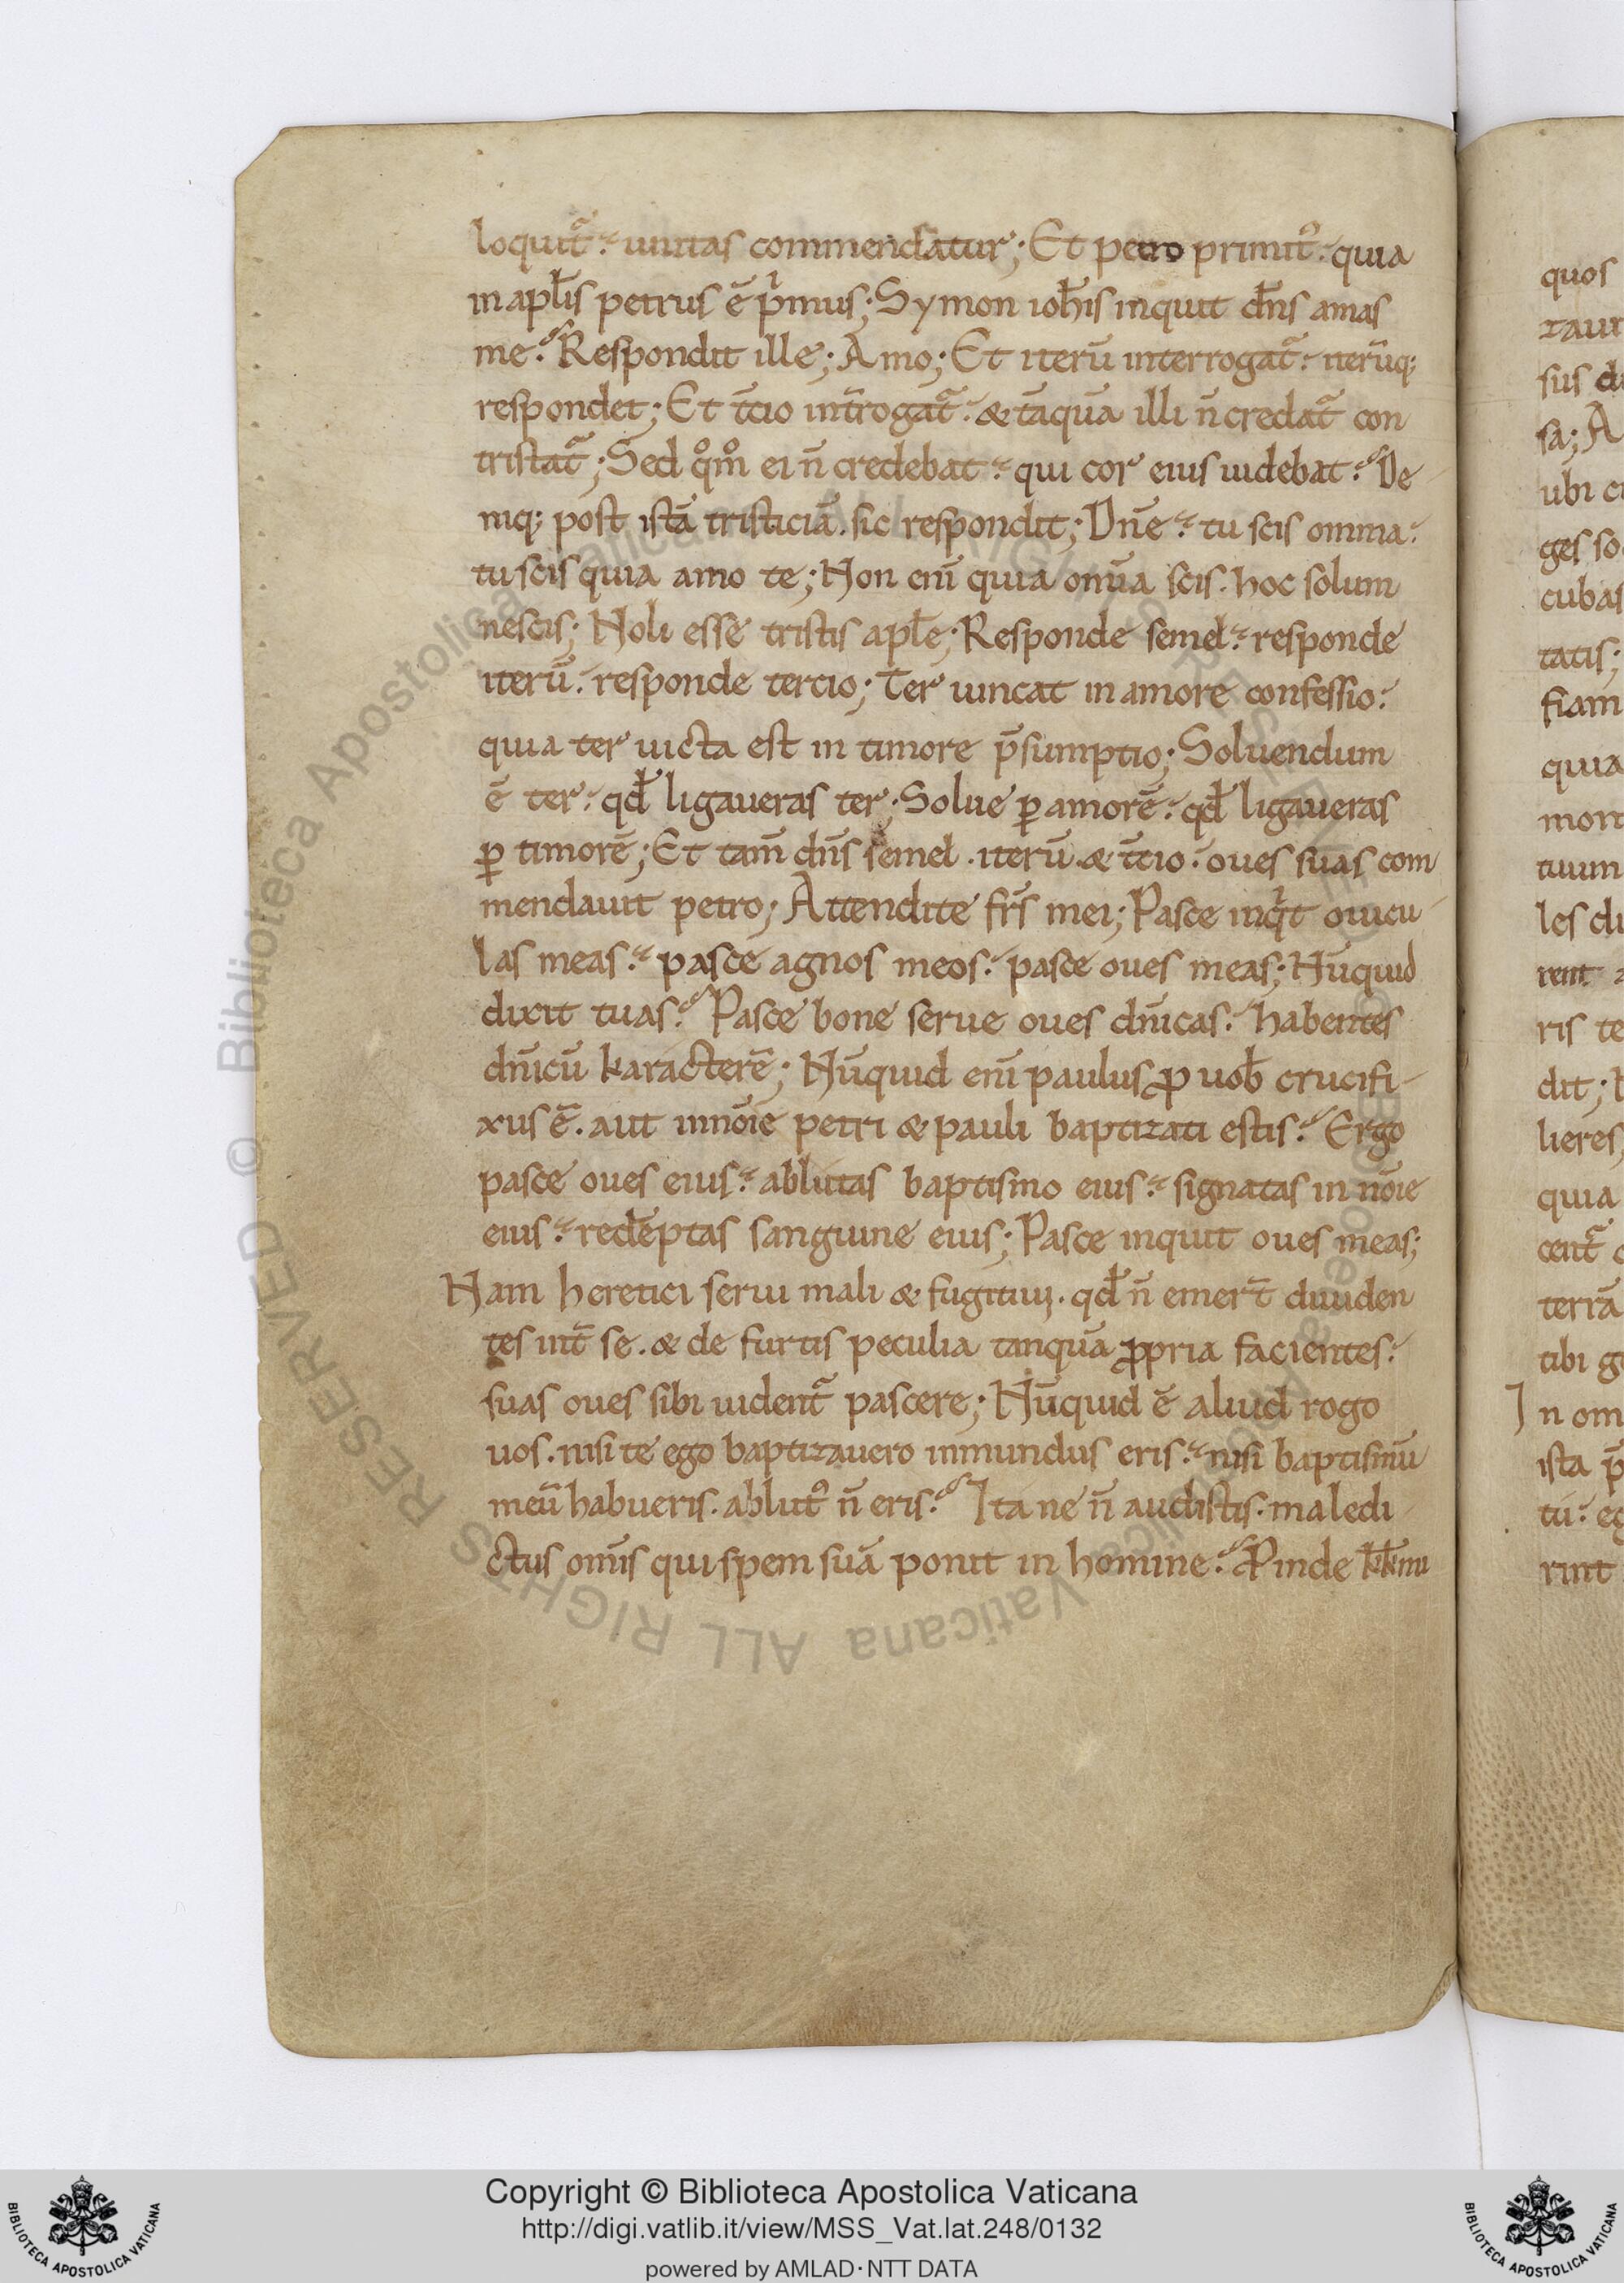 loquit᷑. unitas commendatur; Et petro primit᷒. quia
in apłis petrus ē pͥmus; Symon ioħis inquit dn̄s amas
me? Respondit ille; Amo; Et iterū interrogat᷑. iterūq;
respondet; Et t̄cio int̄rogat᷑. & tāquā illi n̄ credat᷑ con
tristat᷑; Sed qͦmͦ ei n̄ credebat. qui cor eius uidebat? De
niq; post istā tristiciā. sic respondit; Dn̄e. tu scis omnia.
tu scis quia amo te; Non eni̅ quia om̅ia scis. hoc solum
nescis; Noli esse tristis apłe; Responde semel. responde
iterū. responde tercio; Ter uincat in amore confessio.
quia ter uicta est in timore p̄sumptio; Soluendum
ē ter. qđ ligaueras ter; Solue ꝑ amorē. qđ ligaueras
ꝑ timorē; Et tam̄ dn̄s semel. iterū. & t̄cio. oues suas com
mendauit petro; Attendite fr̄s mei; Pasce inqͥt ouicu
las meas. pasce agnos meos. pasce oues meas; Nūquid
dixit tuas? Pasce bone serue oues dn̄icas. habentes
dn̄icū karacterē; Nūquid eni̅ paulus ꝓ uob̄ crucifi-
xus ē. aut in noīe petri & pauli baptizati estis? Ergo
pasce oues eius. ablutas baptismo eius. signatas in noīe
eius. redēptas sanguine eius; Pasce inquit oues meas;
Nam heretici serui mali & fugitiui. qđ n̄ emer̄t diuiden
tes int̄ se. & de furtis peculia tanquā ꝓpria facientes.
suas oues sibi uident᷑ pascere; Nūquid ē aliud rogo
uos. nisi te ego baptizauero inmundus eris. nisi baptismū
meū habueris. ablut᷒ n̄ eris? Ita ne n̄ audistis. maledi
ctus om̅is qui spem suā ponit in homine? Pinde k̄k̄mi
quos
rauit
sus
sa; A
ubi
ges so
cubas
tatis;
fiam
quia
mort
tuum
les
rent
ris te
dit;
lieres
quia
cent᷑
terrā
tibi
In om
ista
tu.
rint
© Biblioteca Apostolica Vaticana ALL RIGHTS RESERVED © Biblioteca Apostolica Vaticana ALL RIGHTS RESERVED
Copyright © Biblioteca Apostolica Vaticana
http://digi.vatlib.it/view/MSS_Vat.lat.248/0132
powered by AMLAD・NTT DATA
BIBLIOTECA APOSTOLICA VATICANA
BIBLIOTECA APOSTOLICA VATICANA